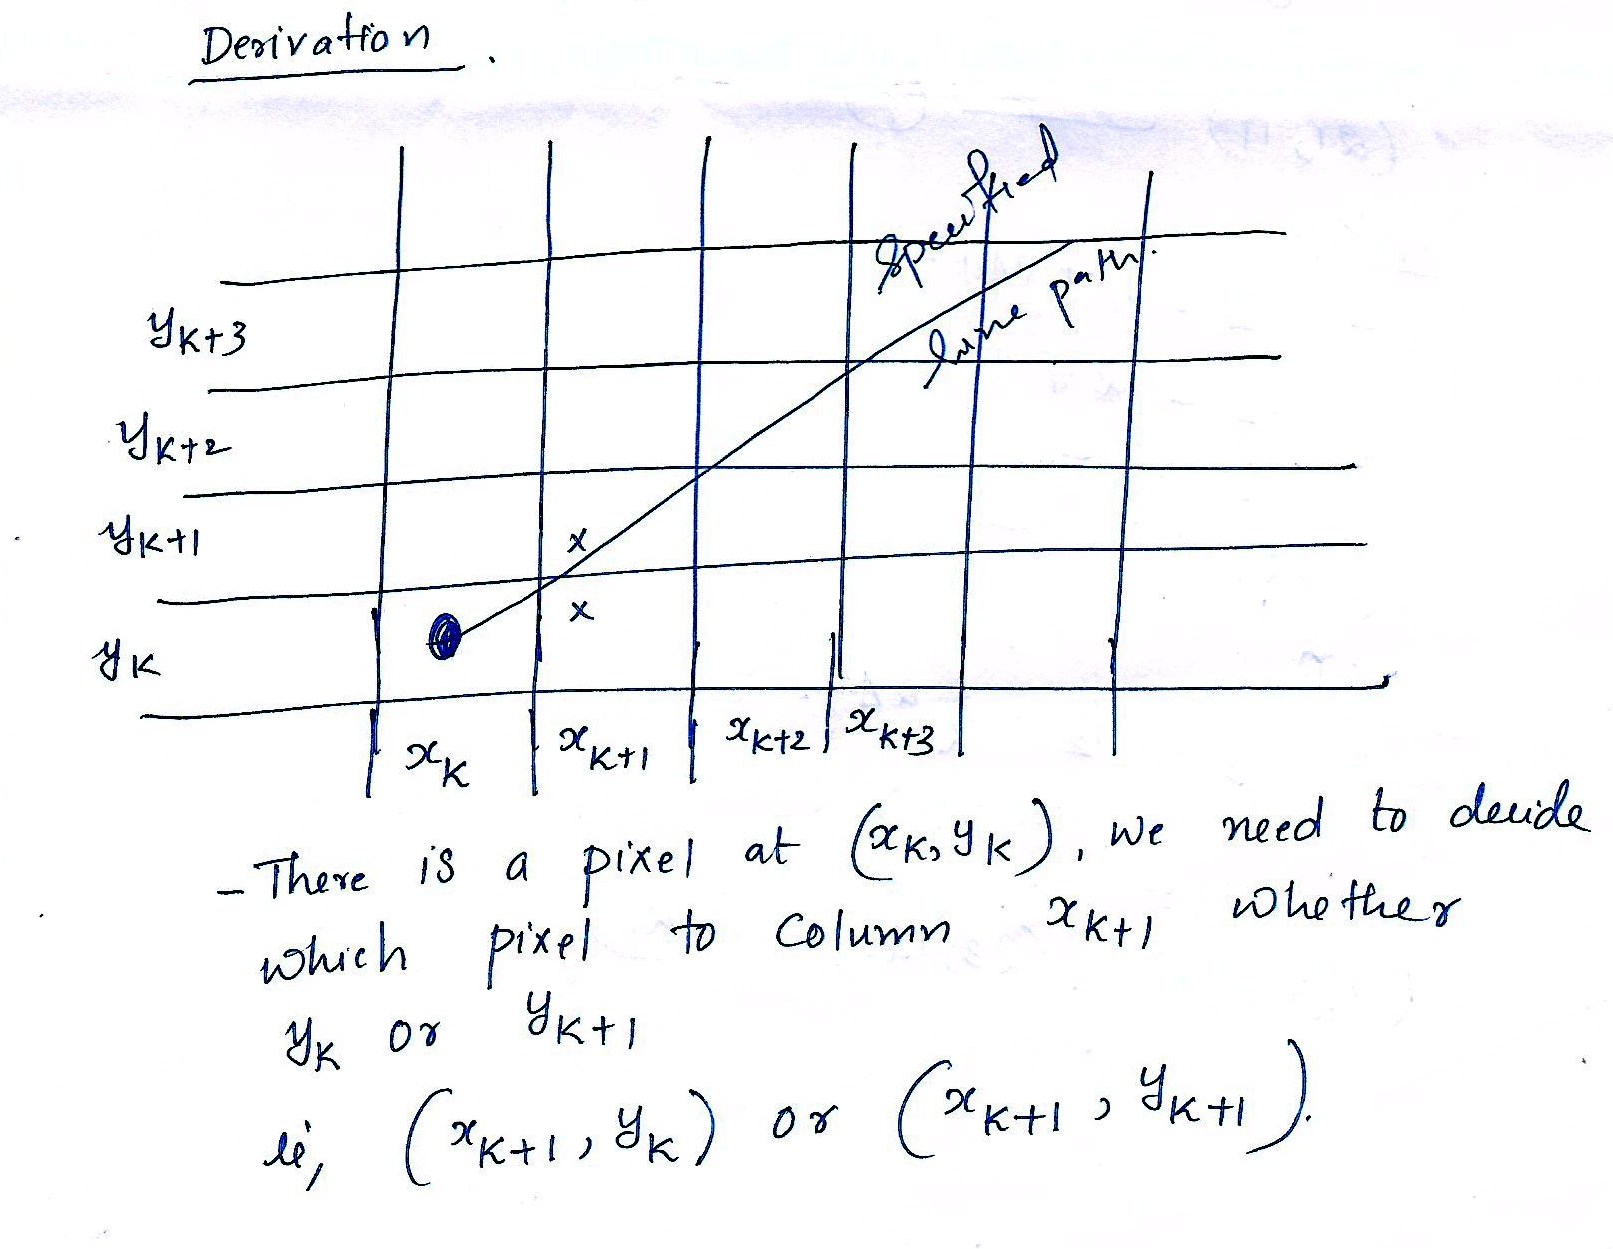 Derivation.
Specified
line path.
yK+3
yK+2
yK+1
x
x
yK
xK xK+1 xK+2 xK+3
- There is a pixel at (xK, yK), we need to decide
which pixel to column xK+1 whether
yK or yK+1
ie, (xK+1, yK) or (xK+1, yK+1).